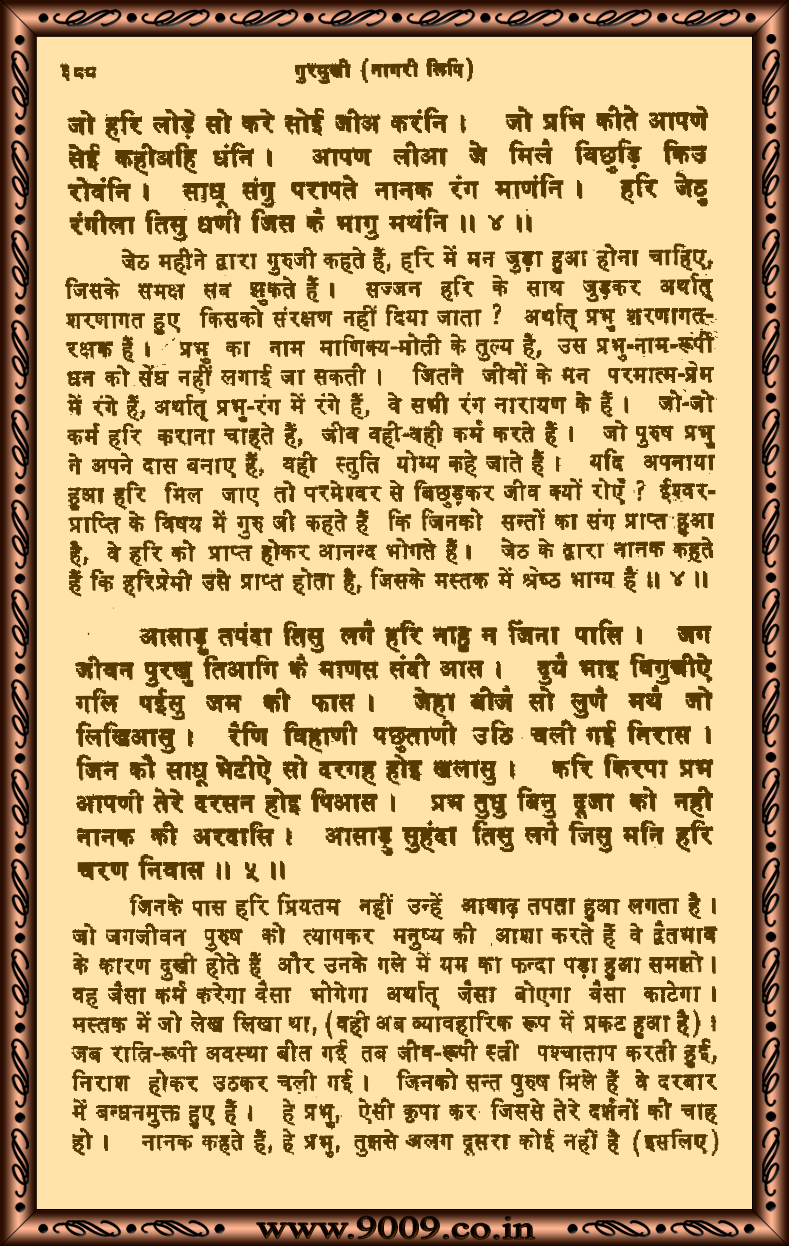 ३९८
गुरमुखी (नागरी लिपि)
जो हरि लोड़े सो करे सोई जीअ करंनि । जो प्रभि कीते आपणे
सेई कहीअहि धंनि । आपण लीआ जे मिलै विछुड़ि किउ
रोवंनि । साधू संगु परापते नानक रंग माणंनि । हरि जेठु
रंगीला तिसु धणी जिस कै भागु मथंनि ॥ ४ ॥
जेठ महीने द्वारा गुरुजी कहते हैं, हरि में मन जुड़ा हुआ होना चाहिए,
जिसके समक्ष सब झुकते हैं । सज्जन हरि के साथ जुड़कर अर्थात्
शरणागत हुए किसको संरक्षण नहीं दिया जाता ? अर्थात् प्रभु शरणागत-
रक्षक हैं । प्रभु का नाम माणिक्य-मोती के तुल्य है, उस प्रभु-नाम-रूपी
धन को सेंध नहीं लगाई जा सकती । जितने जीवों के मन परमात्म-प्रेम
में रंगे हैं, अर्थात् प्रभु-रंग में रंगे हैं, वे सभी रंग नारायण के हैं । जो-जो
कर्म हरि कराना चाहते हैं, जीव वही-वही कर्म करते हैं । जो पुरुष प्रभु
ने अपने दास बनाए हैं, वही स्तुति योग्य कहे जाते हैं । यदि अपनाया
हुआ हरि मिल जाए तो परमेश्वर से बिछुड़कर जीव क्यों रोएँ ? ईश्वर-
प्राप्ति के विषय में गुरु जी कहते हैं कि जिनको सन्तों का संग प्राप्त हुआ
है, वे हरि को प्राप्त होकर आनन्द भोगते हैं । जेठ के द्वारा नानक कहते
हैं कि हरिप्रेमी उसे प्राप्त होता है, जिसके मस्तक में श्रेष्ठ भाग्य हैं ॥ ४ ॥
आसाड़ु तपंदा तिसु लगै हरि नाहु न जिंना पासि । जग
जीवन पुरखु तिआगि कै माणस संदी आस । दुयै भाइ विगुचीऐ
गलि पईसु जम की फास । जेहा बीजै सो लुणै मथै जो
लिखिआसु । रैणि विहाणी पछुताणी उठि चली गई निरास ।
जिन कौ साधू भेटीऐ सो दरगह होइ खलासु । करि किरपा प्रभ
आपणी तेरे दरसन होइ पिआस । प्रभ तुधु बिनु दूजा को नही
नानक की अरदासि । आसाड़ु सुहंदा तिसु लगै जिसु मनि हरि
चरण निवास ॥ ५ ॥
जिनके पास हरि प्रियतम नहीं उन्हें आषाढ़ तपता हुआ लगता है ।
जो जगजीवन पुरुष को त्यागकर मनुष्य की आशा करते हैं वे द्वैतभाव
के कारण दुखी होते हैं और उनके गले में यम का फन्दा पड़ा हुआ समझो ।
वह जैसा कर्म करेगा वैसा भोगेगा अर्थात् जैसा बोएगा वैसा काटेगा ।
मस्तक में जो लेख लिखा था, (वही अब व्यावहारिक रूप में प्रकट हुआ है) ।
जब रात्रि-रूपी अवस्था बीत गई तब जीव-रूपी स्त्री पश्चाताप करती हुई,
निराश होकर उठकर चली गई । जिनको सन्त पुरुष मिले हैं वे दरबार
में बन्धनमुक्त हुए हैं । हे प्रभु, ऐसी कृपा कर जिससे तेरे दर्शनों की चाह
हो । नानक कहते हैं, हे प्रभु, तुझसे अलग दूसरा कोई नहीं है (इसलिए)
www.9009.co.in